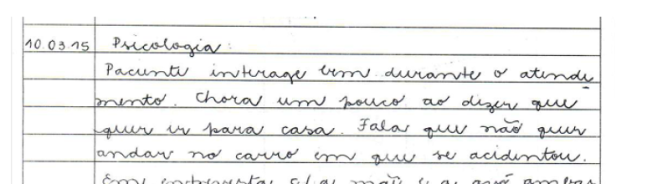 10.03.15 Psicologia:
Paciente interage bem durante o atendi
mento. Chora um pouco ao dizer que
quer ir para casa. Fala que não quer
andar no carro em que se acidentou.
Em entrevista, c/ a mãe e a avó ambas